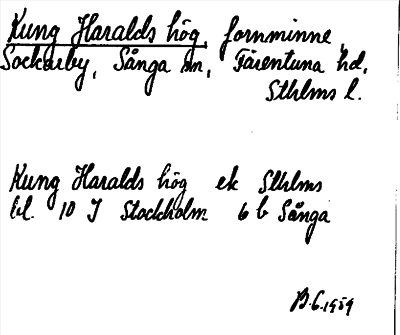 Kung Haralds hög, fornminne,
Sockarby, Sånga sn, Färentuna hd,
Sthlms l.
Kung Haralds hög ek Sthlms
bl. 10 J Stockholm 6 b Sånga
B.G. 1959